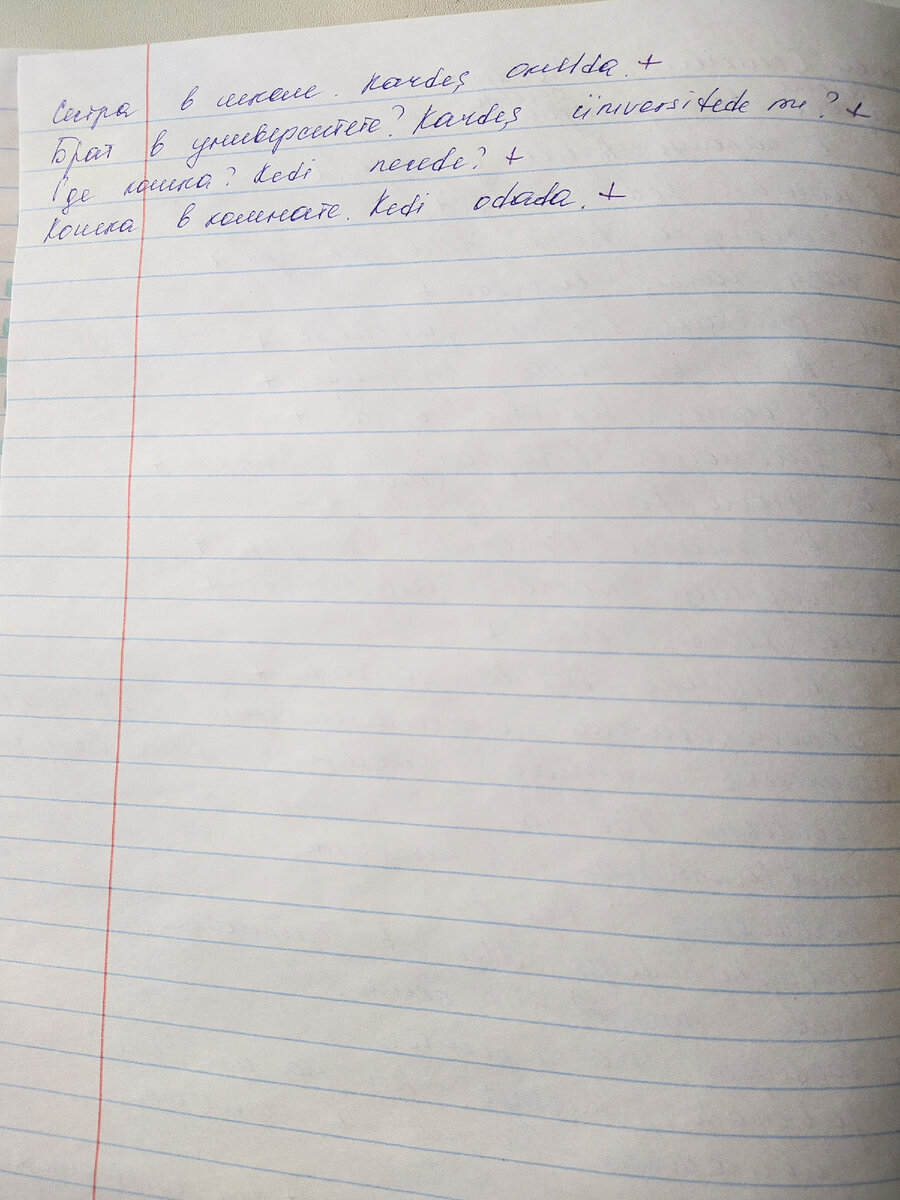 Сестра в школе. Kardeş okulda. +
Брат в университете? Kardeş üniversitede mi? +
Где кошка? Kedi nerede? +
Кошка в комнате. Kedi odada. +